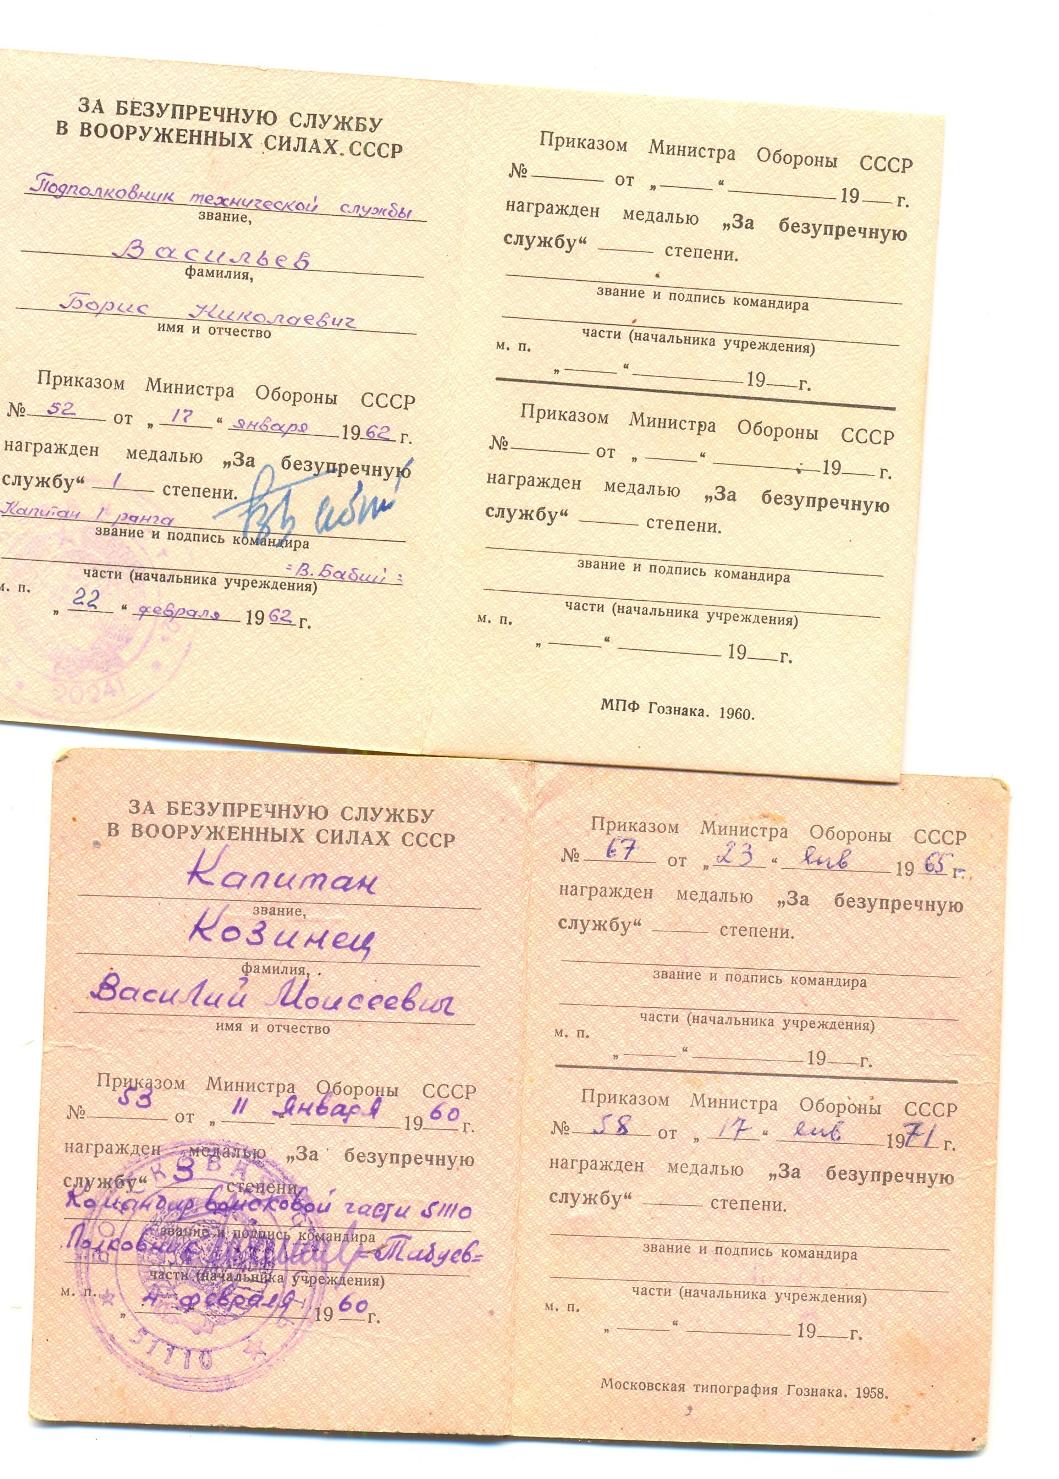 ЗА БЕЗУПРЕЧНУЮ СЛУЖБУ
В ВООРУЖЕННЫХ СИЛАХ СССР
Подполковник технической службы
звание,
Васильев
фамилия,
Борис Николаевич
имя и отчество
Приказом Министра Обороны СССР
№ 52 от „ 17 “ января 1962 г.
награжден медалью „За безупречную
службу“ 1 степени.
Капитан 1 ранга
звание и подпись командира
=В. Бабий=
части (начальника учреждения)
м. п.
„ 22 “ февраля 1962 г.
20241
Приказом Министра Обороны СССР
№ от „ “ 19 г.
награжден медалью „За безупречную
службу“ степени.
звание и подпись командира
части (начальника учреждения)
м. п.
„ “ 19 г.
Приказом Министра Обороны СССР
№ от „ “ 19 г.
награжден медалью „За безупречную
службу“ степени.
звание и подпись командира
части (начальника учреждения)
м. п.
„ “ 19 г.
МПФ Гознака. 1960.
ЗА БЕЗУПРЕЧНУЮ СЛУЖБУ
В ВООРУЖЕННЫХ СИЛАХ СССР
Капитан
звание,
Козинец
фамилия,
Василий Моисеевич
имя и отчество
Приказом Министра Обороны СССР
№ 53 от „ 11 “ января 1960 г.
награжден медалью „За безупречную
службу“ 3 степени.
Командир войсковой части 51110
звание и подпись командира
Полковник =Табуев=
части (начальника учреждения)
м. п.
„ 4 “ февраля 1960 г.
51110
Приказом Министра Обороны СССР
№ 67 от „ 23 “ янв 1965 г.
награжден медалью „За безупречную
службу“ степени.
звание и подпись командира
части (начальника учреждения)
м. п.
„ “ 19 г.
Приказом Министра Обороны СССР
№ 58 от „ 17 “ янв 1971 г.
награжден медалью „За безупречную
службу“ степени.
звание и подпись командира
части (начальника учреждения)
м. п.
„ “ 19 г.
Московская типография Гознака. 1958.